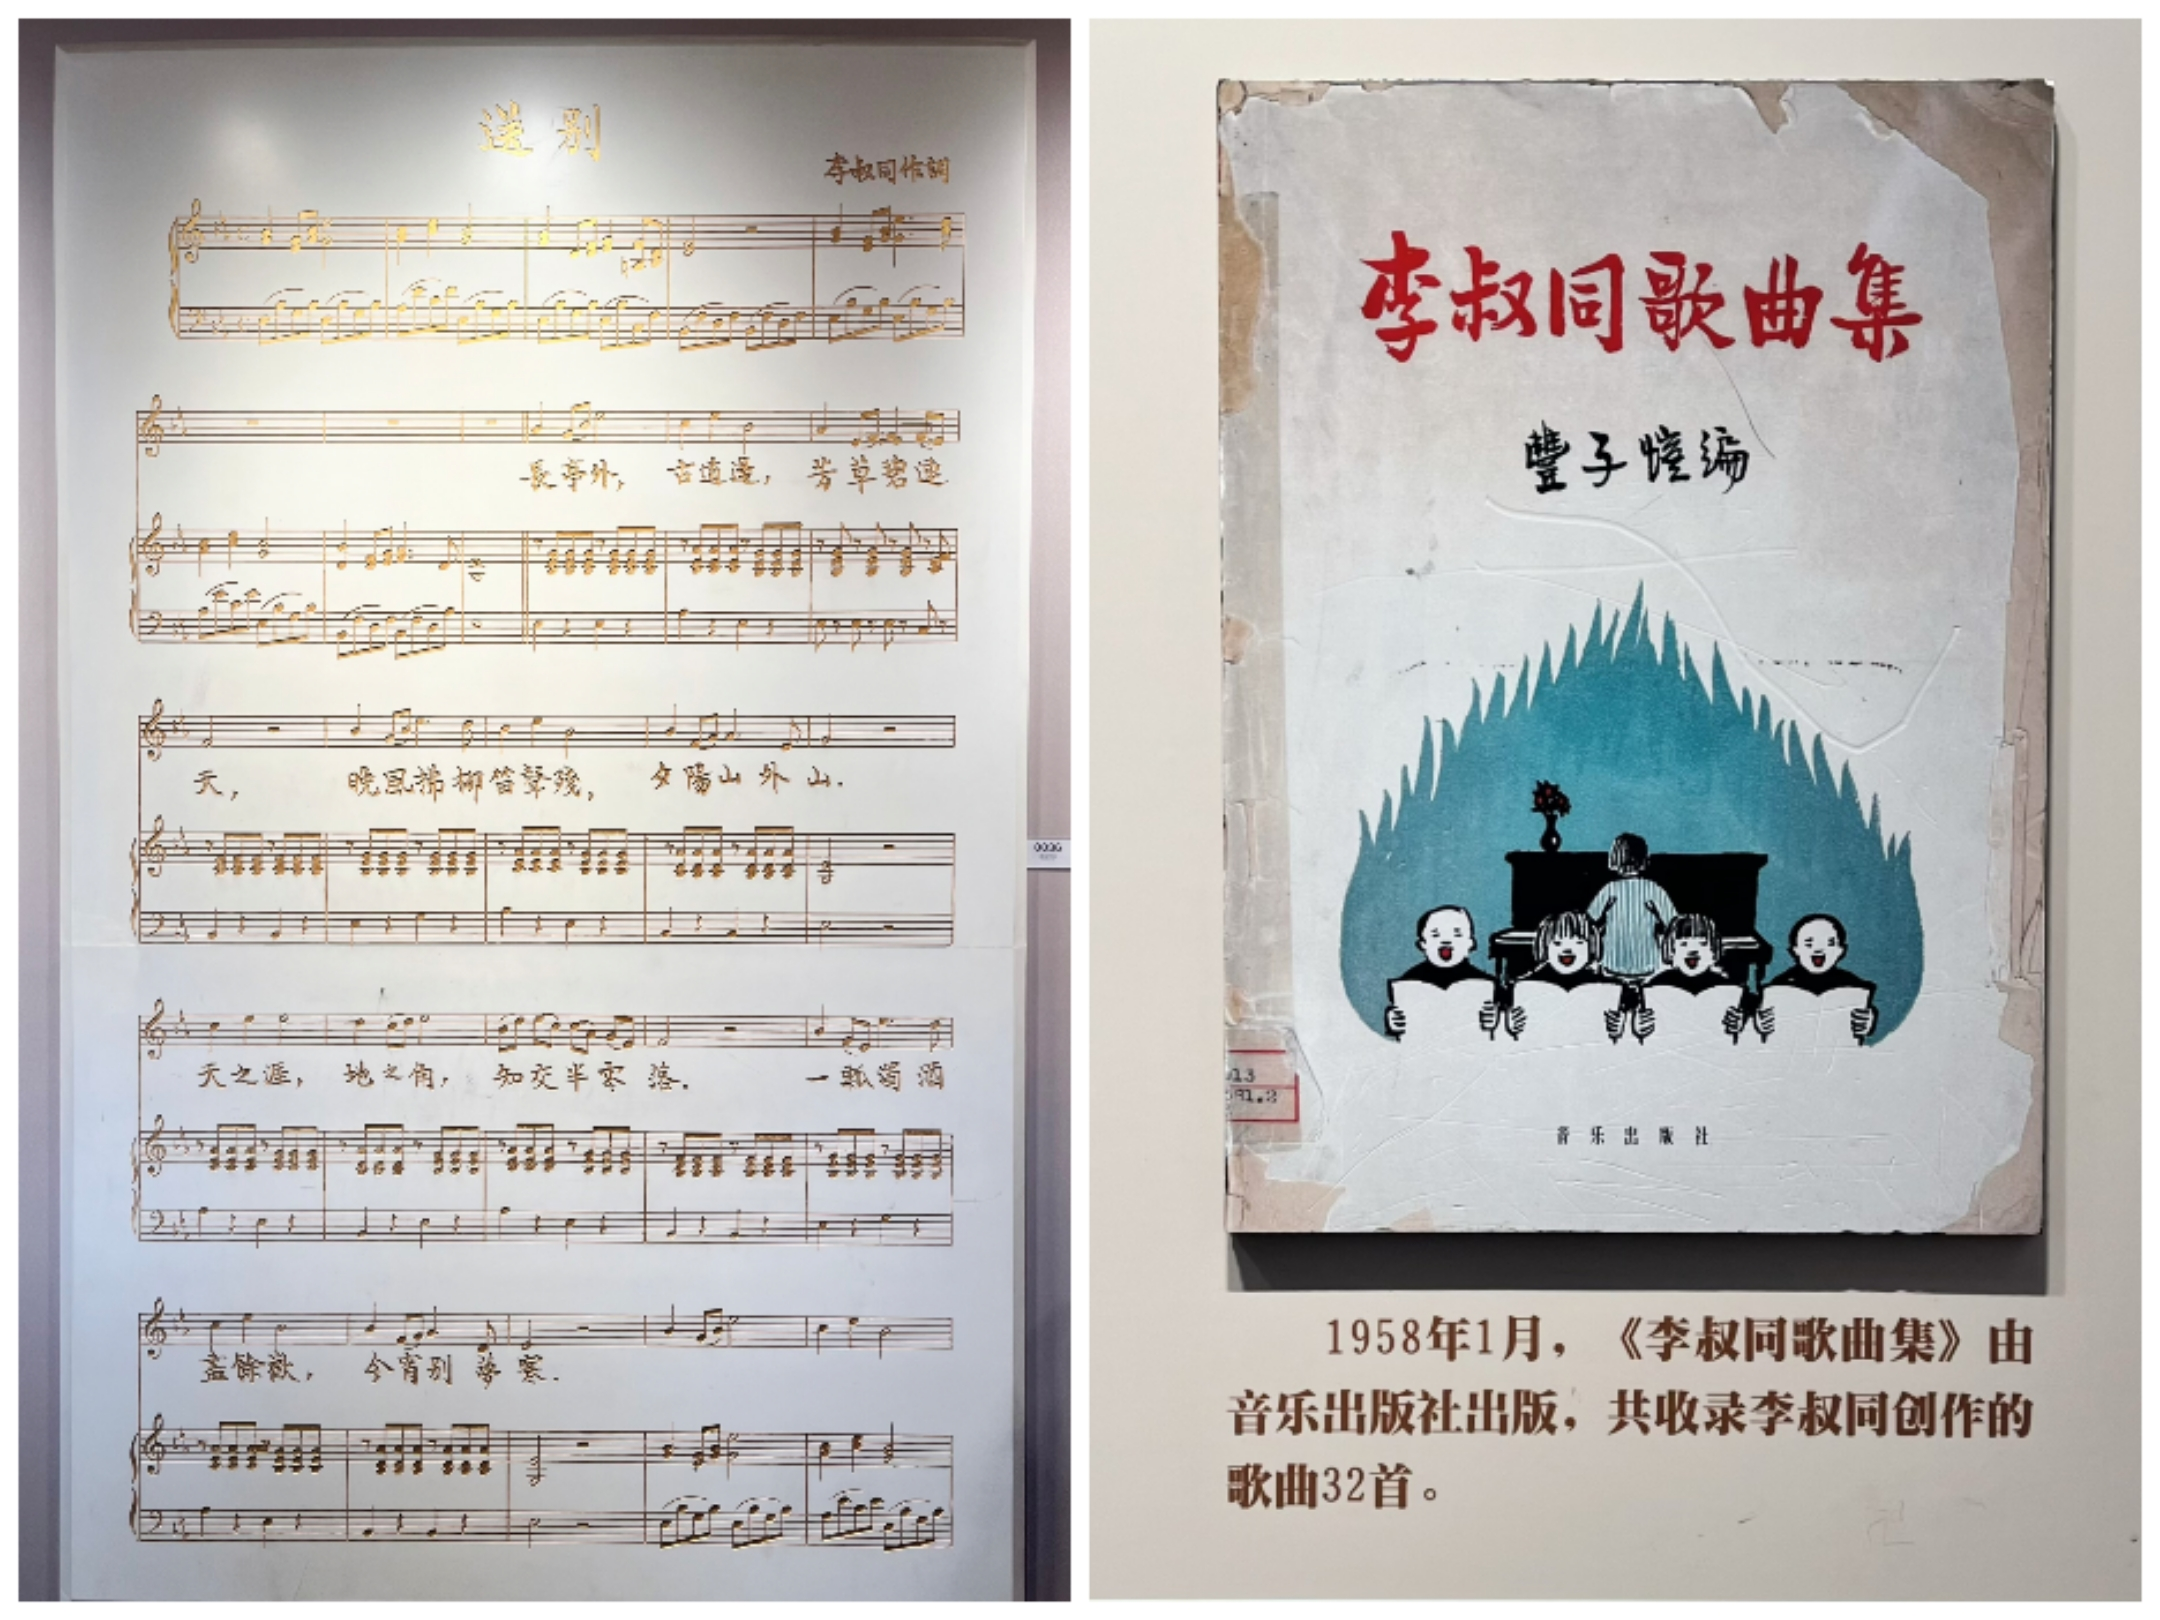 送别
李叔同作詞
長亭外， 古道邊， 芳草碧連
天， 晚風拂柳笛聲殘， 夕陽山外山.
天之涯， 地之角， 知交半零落. 一瓢濁酒
盡餘歡， 今宵别夢寒.
0036
李叔同歌曲集
豐子愷编
音乐出版社
1958年1月，《李叔同歌曲集》由
音乐出版社出版，共收录李叔同创作的
歌曲32首。